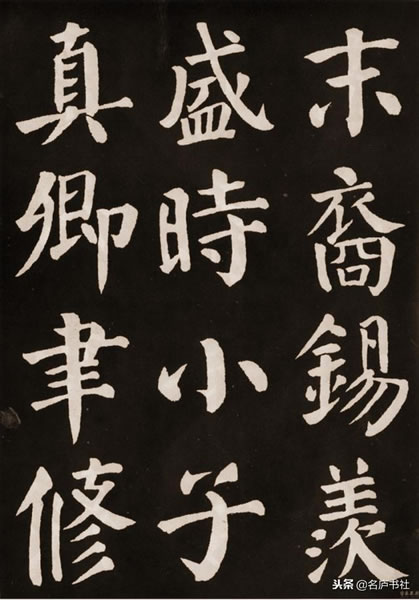 末裔錫羨
盛時小子
真卿聿修
头条 @名庐书社